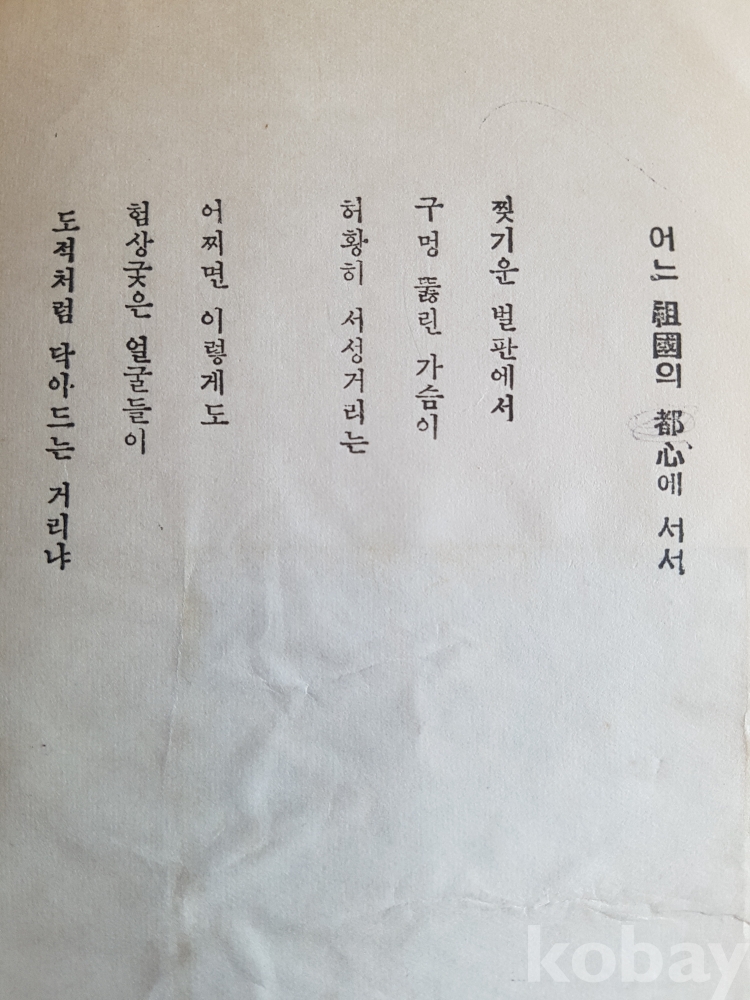 어느 祖國의 都心에 서서
찢기운 벌판에서
구멍 뚫린 가슴이
허황히 서성거리는
어찌면 이렇게도
험상궂은 얼굴들이
도적처럼 닥아드는 거리냐
kobay